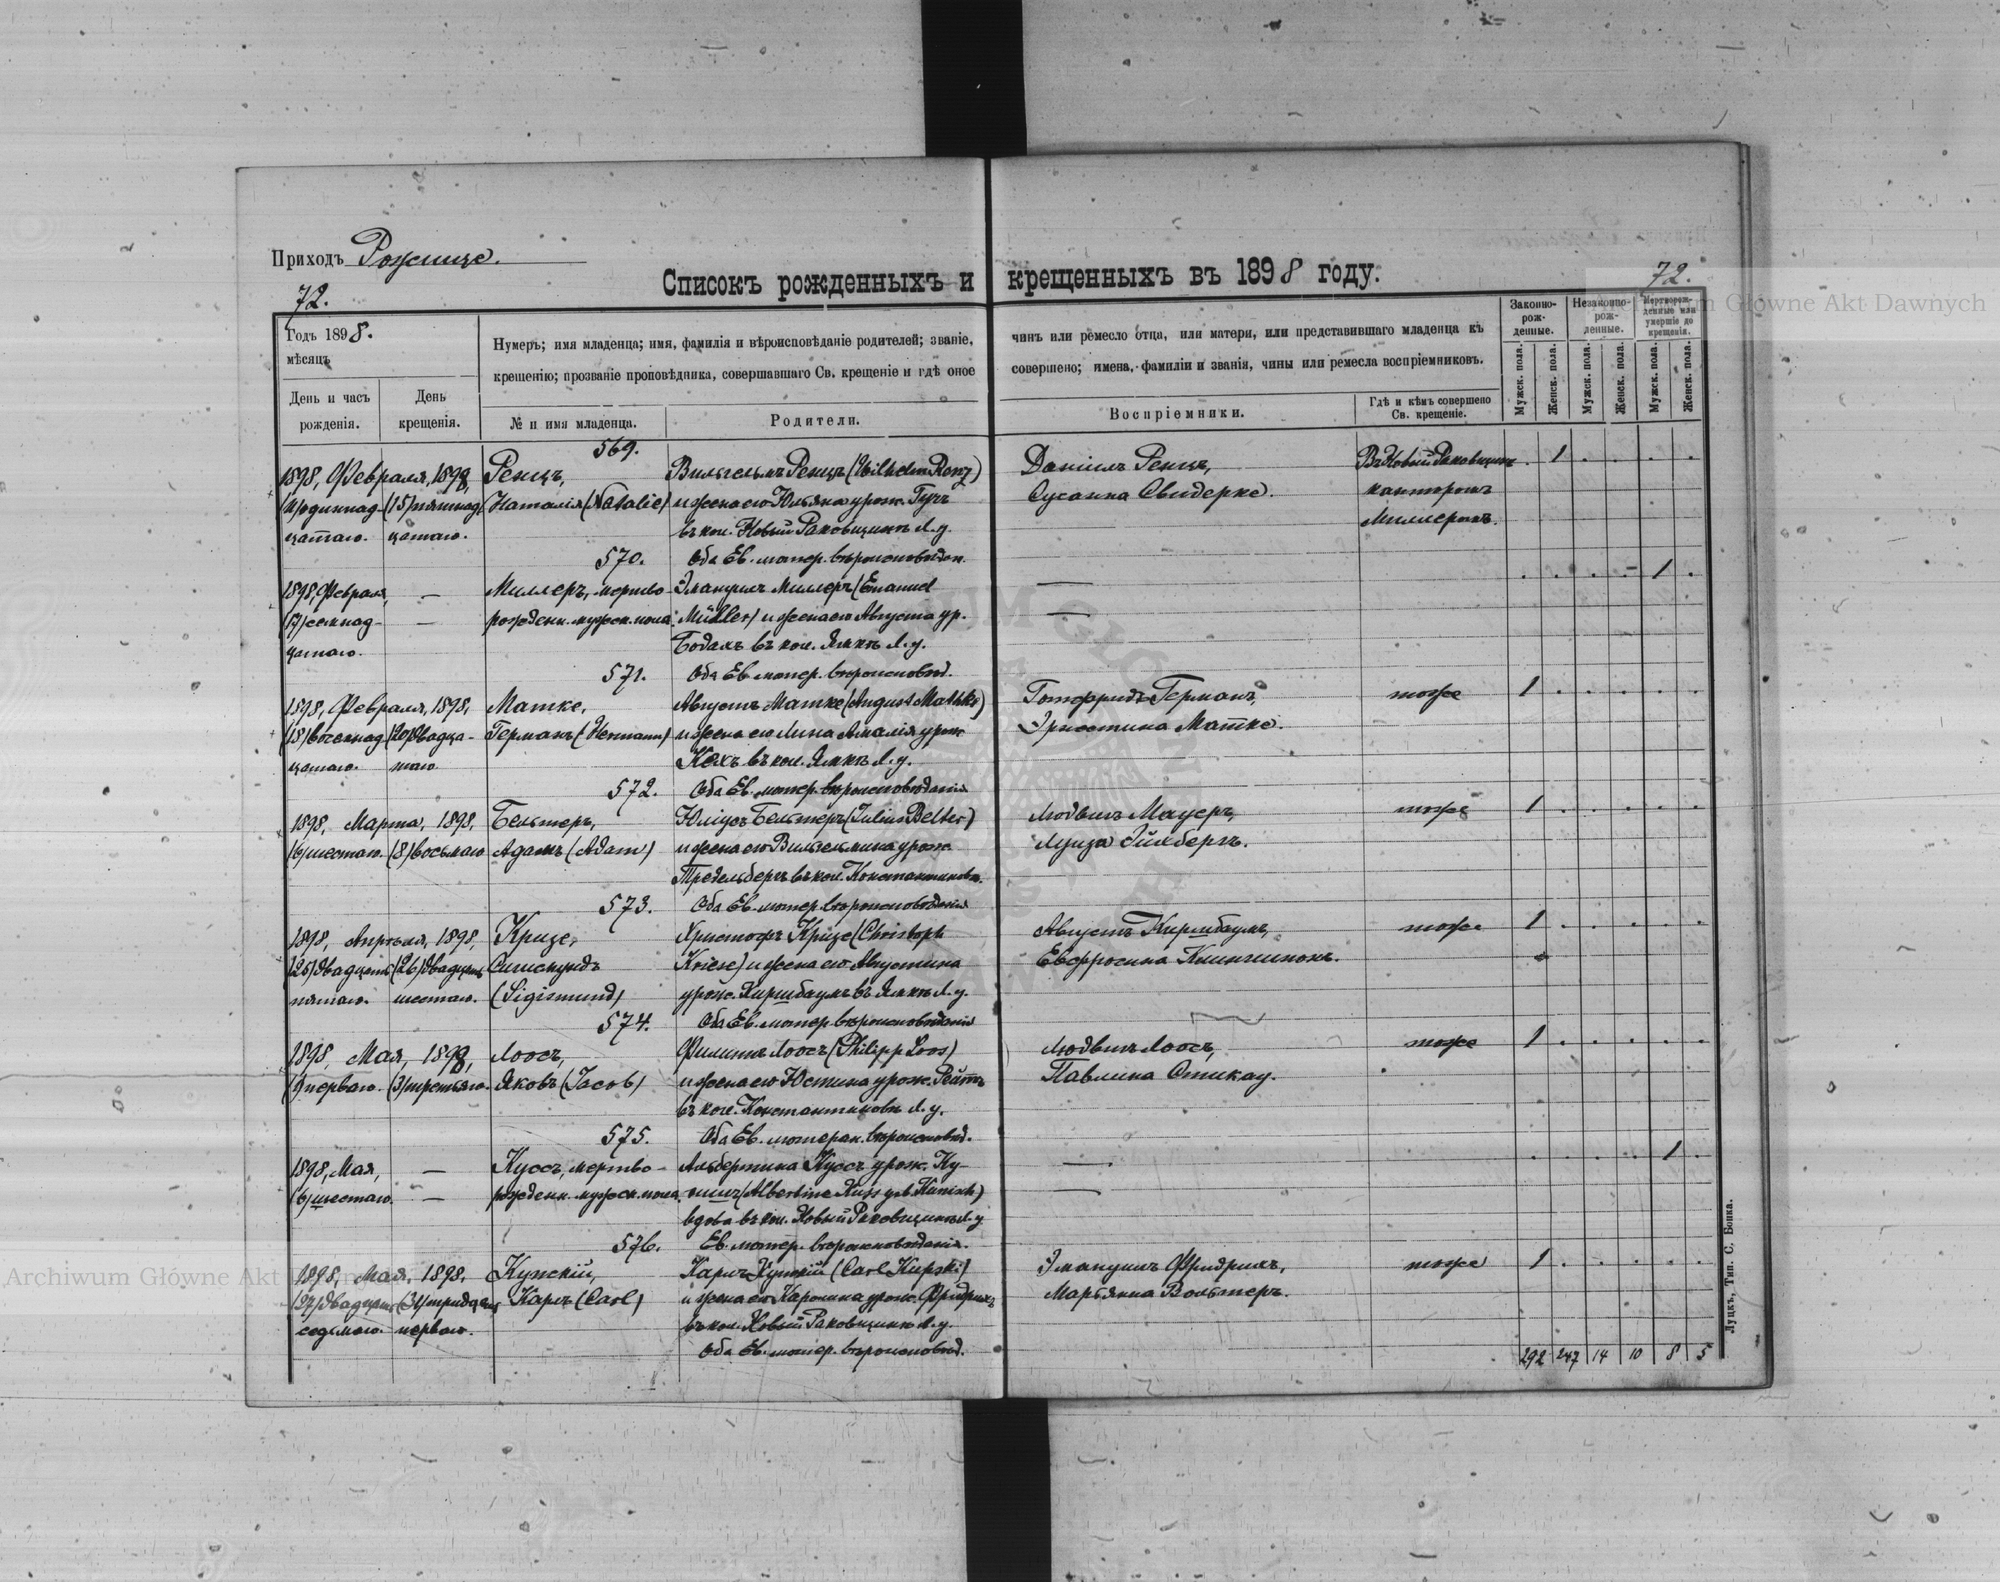 Приходъ Рожище.
72.
72.
Списокъ рожденныхъ и крещенныхъ въ 1898 году.
Годъ 1898.
мѣсяцъ
День и часъ рожденія.
День крещенія.
Нумеръ; имя младенца; имя, фамилія и вѣроисповѣданіе родителей; званіе,
крещенію; прозваніе проповѣдника, совершавшаго Св. крещеніе и гдѣ оное
№ и имя младенца.
Родители.
чинъ или ремесло отца, или матери, или представившаго младенца къ
совершено; имена, фамиліи и званія, чины или ремесла воспріемниковъ.
Воспріемники.
Гдѣ и кѣмъ совершено
Св. крещеніе.
Законно-
рож-
денные.
Незаконно-
рож-
ленные.
Мертворож-
денные или
умершіе до
крещенія.
Мужск. пола.
Женск. пола.
Мужск. пола.
Женск. пола.
Мужск. пола.
Женск. пола.
569.
1898, Февраля, 1898, Ренцъ, Вильгельмъ Ренцъ (Wilhelm Renz) Даніилъ Ренцъ, Въ Новый Раковщинѣ 1
(11) одиннад- (15) пятнад- Наталія (Natalie) и жена его Юльяна урож. Гучъ Сусанна Свидерке. канторомъ
цатаго. цатаго. въ кол. Новый Раковщинѣ Л. у. Миллеромъ.
570. Оба Ев. лютер. вѣроисповѣдан.
1898, Февраля, — Миллеръ, мертво- Эмануилъ Миллеръ (Emanuel — 1
(17) семнад- — рожденн. мужск. пола. Müller) и жена его Августа ур. —
цатаго. въ кол. Ямкѣ Л. у.
571. Оба Ев. лютер. вѣроисповѣд.
1898, Февраля, 1898, Матке, Августъ Матке (August Mathke) Готфридъ Германъ, тоже 1
(18) восемнад- (20) двадца- Германъ (Hermann) и жена его Лина Амалія урож. Эрнестина Матке.
цатаго. таго. въ кол. Ямкѣ Л. у.
572. Оба Ев. лютер. вѣроисповѣданія
1898, Марта, 1898, Бельтеръ, Юліусъ Бельтеръ (Julius Belter) Людвигъ Мауеръ, тоже 1
(6) шестаго. (8) восьмаго Адамъ (Adam) и жена его Вильгельмина урож. Луиза
въ кол. Константиновк.
573. Оба Ев. лютер. вѣроисповѣданія
1898, Апрѣля, 1898, Кризе, Христофъ Кризе (Christoph Августъ Киршбаумъ, тоже 1
(25) двадцать (26) двадцать Сигисмундъ Kriese) и жена его Августина Евфросина
пятаго. шестаго. (Sigismund) урож. Киршбаумъ въ Ямкѣ Л. у.
574. Оба Ев. лютер. вѣроисповѣданія
1898, Мая, 1898, Лоосъ, Филиппъ Лоосъ (Philipp Loos) Людвигъ Лоосъ, тоже 1
(1) перваго. (3) третьяго. Яковъ (Jacob) и жена его Юстина урож. Павлина Стикау.
въ кол. Константиновк Л. у.
575. Оба Ев. лютеран. вѣроисповѣд.
1898, Мая, — Куссъ, мертво- Альбертина Куссъ урож. Ку- — 1
(6) шестаго. — рожденн. мужск. пола. нишъ (Albertine Kuss geb. Kunisch) —
вдова въ кол. Новый Раковщинѣ Л. у.
576. Ев. лютер. вѣроисповѣданія.
1898, Мая, 1898, Купскій, Карлъ Купскій (Carl Kupski) Эмануилъ Фридрихъ, тоже 1
(27) двадцать (31) тридцать Карлъ (Carl) и жена его Каролина урож. Фридрихъ Марьянна Вольтеръ.
седьмаго. перваго. въ кол. Новый Раковщинѣ Л. у.
Оба Ев. лютер. вѣроисповѣд.
292 247 14 10 8 5
Луцкъ, Тип. С. Бонка.
Archiwum Główne Akt Dawnych